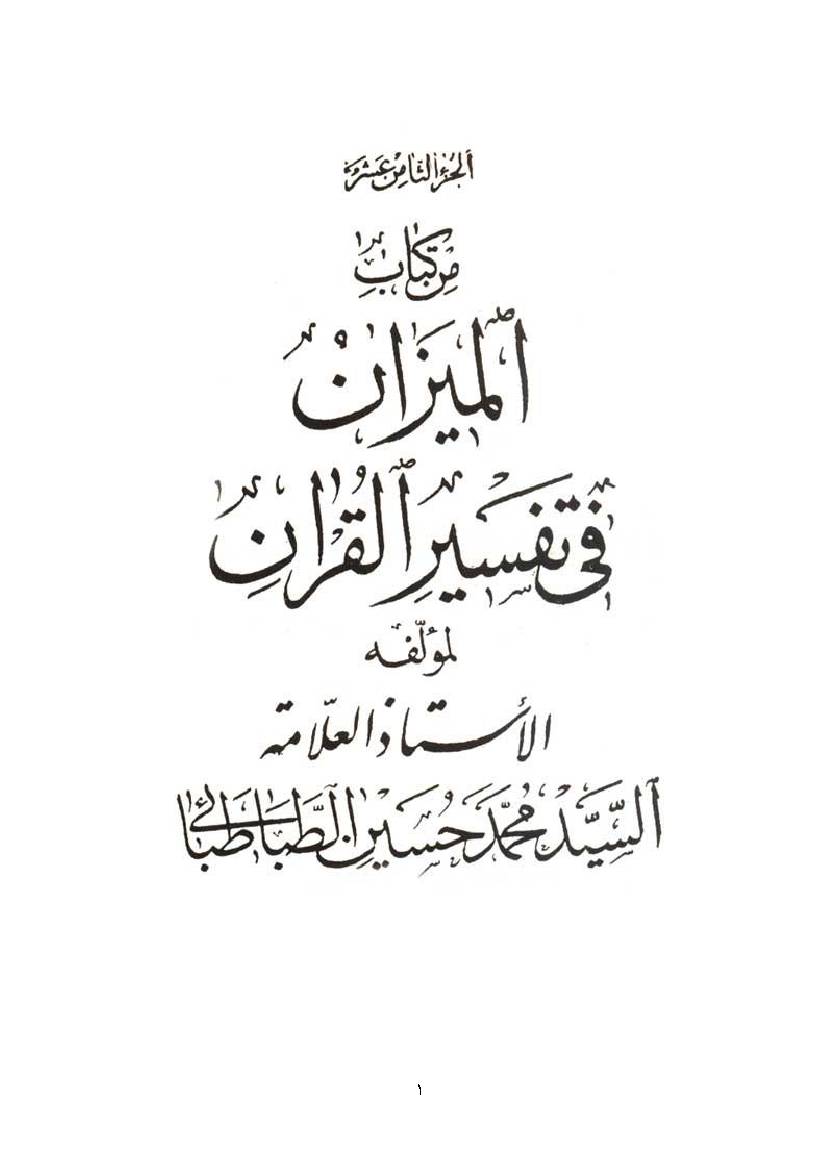 الجزء الثامن عشر
من كتاب
الميزان
في تفسير القرآن
لمؤلفه
الأستاذ العلامة
السيد محمد حسين الطباطبائي
١